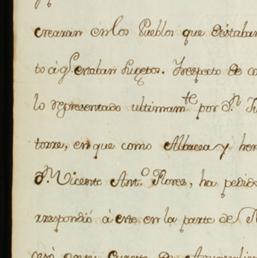 crearan en los Pueblos que distaban
to á q.e estaban sugetos. Irespecto de co
lo representado ultimam.te por D.n Ju
torre, en que como Albacea y her
D.n Vicente Ant.o Flores, ha pedido
rrespondió á este en la parte de